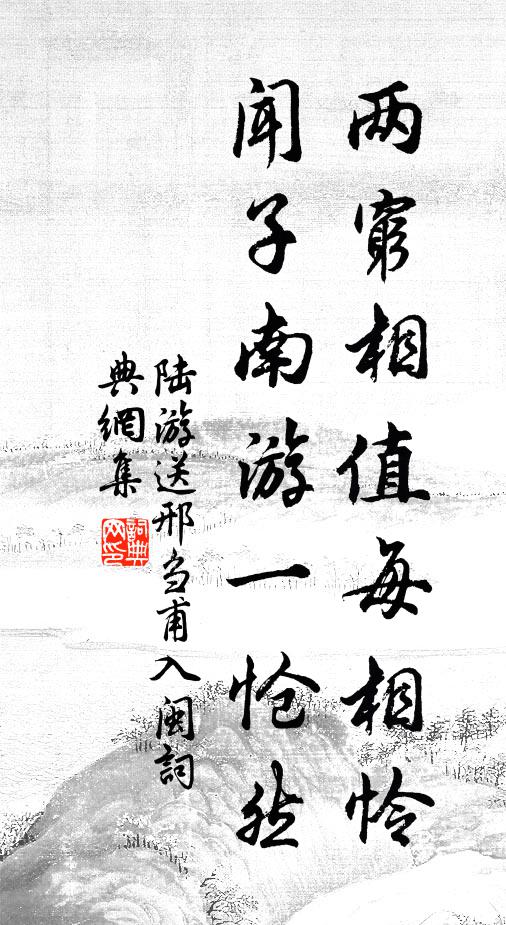 两窮相值每相怜
闻子南游一怆然
陆游送邢刍甫入闽詞
典網集
詞典网印